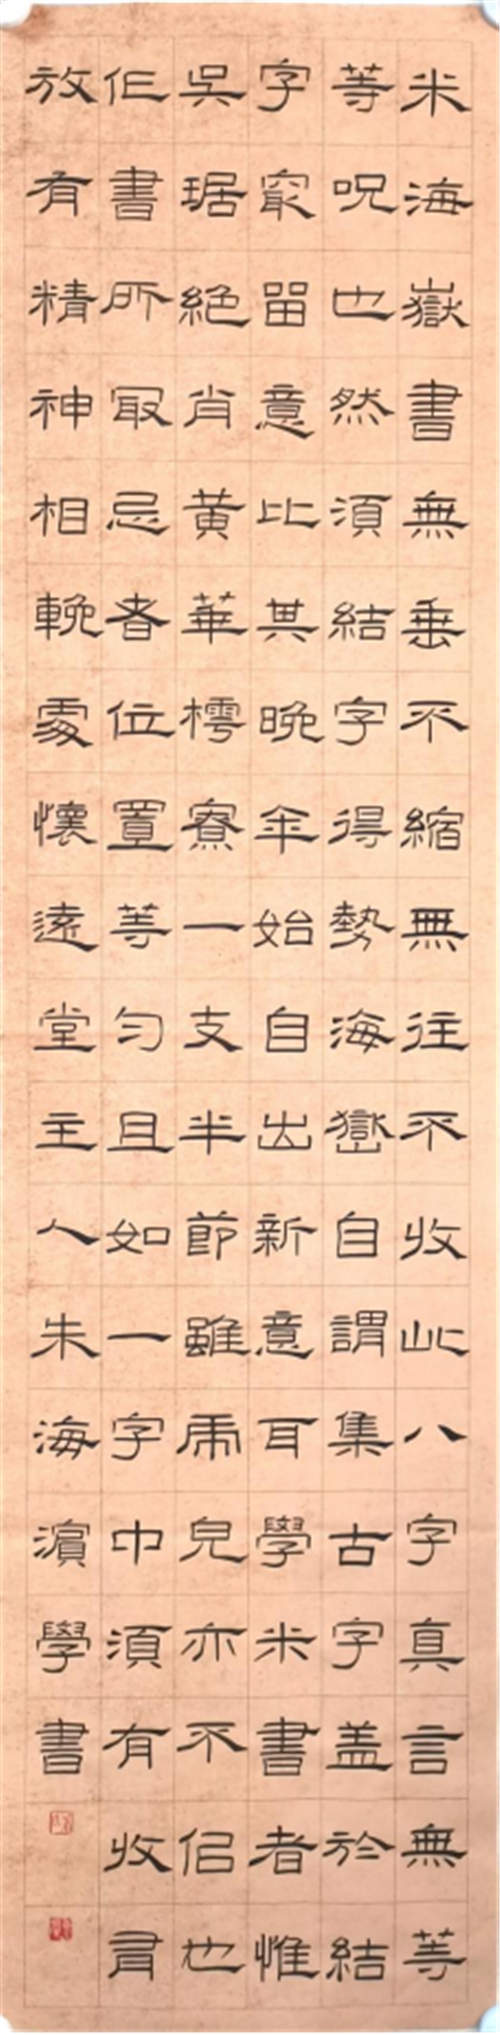 米海嶽書無垂不縮無往不收此八字真言無等
等呪也然須結字得勢海嶽自謂集古字盖於結
字㝡留意比其晚年始自出新意耳學米書者惟
吳琚絕肖黃華樗寮一支半節雖虎兒亦不佀也
作書所冣忌者位置等勻且如一字中須有收有
放有精神相輓處懷遠堂主人朱海濱學書